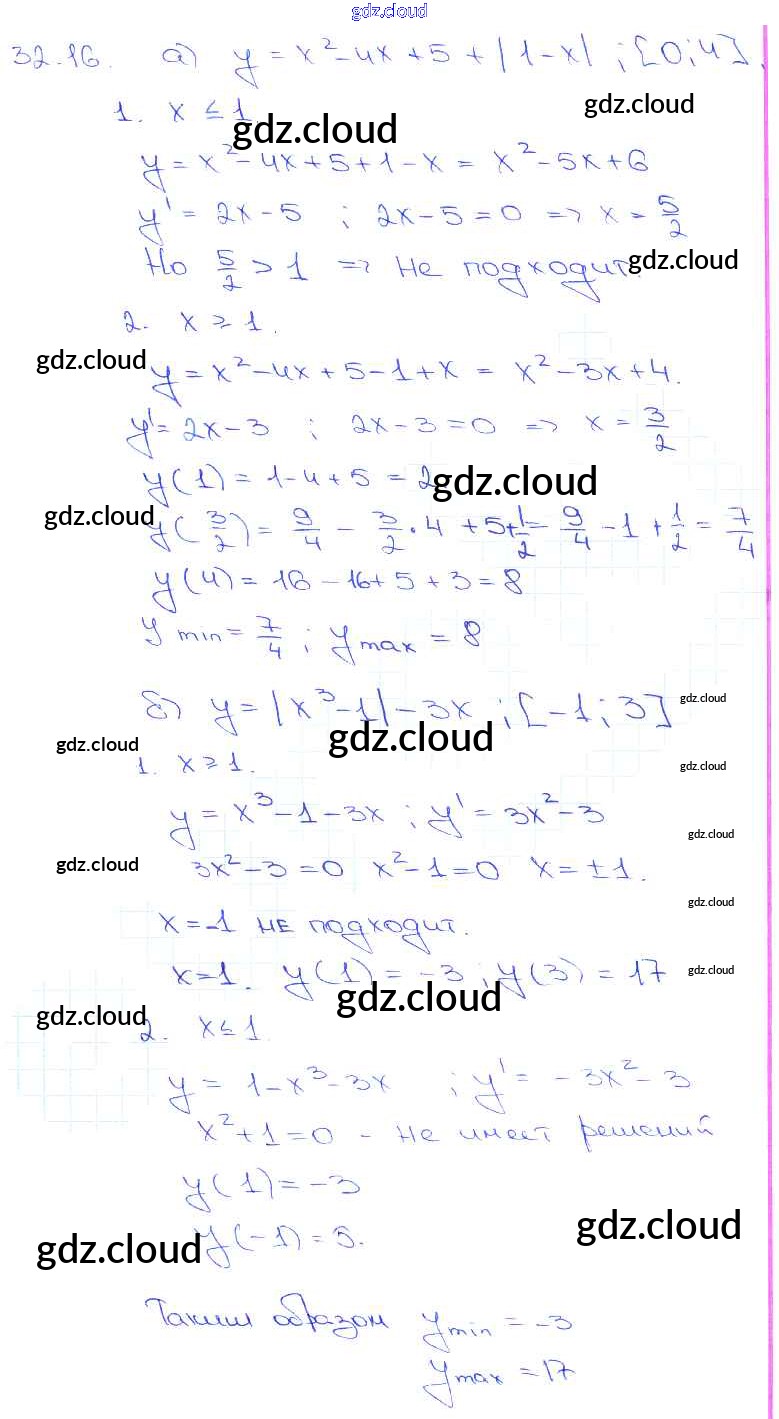 gdz.cloud
32.16. а) y = x² - 4x + 5 + |1 - x| ; [0; 4].
gdz.cloud
1. x ≤ 1.
gdz.cloud
y = x² - 4x + 5 + 1 - x = x² - 5x + 6
y' = 2x - 5 ; 2x - 5 = 0 => x = 5/2
Но 5/2 > 1 => не подходит.
gdz.cloud
2. x ≥ 1.
gdz.cloud
y = x² - 4x + 5 - 1 + x = x² - 3x + 4.
y' = 2x - 3 ; 2x - 3 = 0 => x = 3/2
y(1) = 1 - 4 + 5 = 2
gdz.cloud
gdz.cloud
y(3/2) = 9/4 - 3/2 · 4 + 5 + 1/2 = 9/4 - 1 + 1/2 = 7/4
y(4) = 16 - 16 + 5 + 3 = 8
y min = 7/4 ; y max = 8
б) y = |x³ - 1| - 3x ; [-1; 3]
gdz.cloud
gdz.cloud
gdz.cloud
1. x ≥ 1.
gdz.cloud
y = x³ - 1 - 3x ; y' = 3x² - 3
gdz.cloud
gdz.cloud
3x² - 3 = 0 x² - 1 = 0 x = ± 1.
gdz.cloud
x = -1 не подходит.
x = 1. y(1) = -3 ; y(3) = 17
gdz.cloud
gdz.cloud
gdz.cloud
2. x ≤ 1.
y = 1 - x³ - 3x ; y' = - 3x² - 3
x² + 1 = 0 - не имеет решений
y(1) = -3
gdz.cloud
gdz.cloud
y(-1) = 5.
Таким образом y min = -3
y max = 17